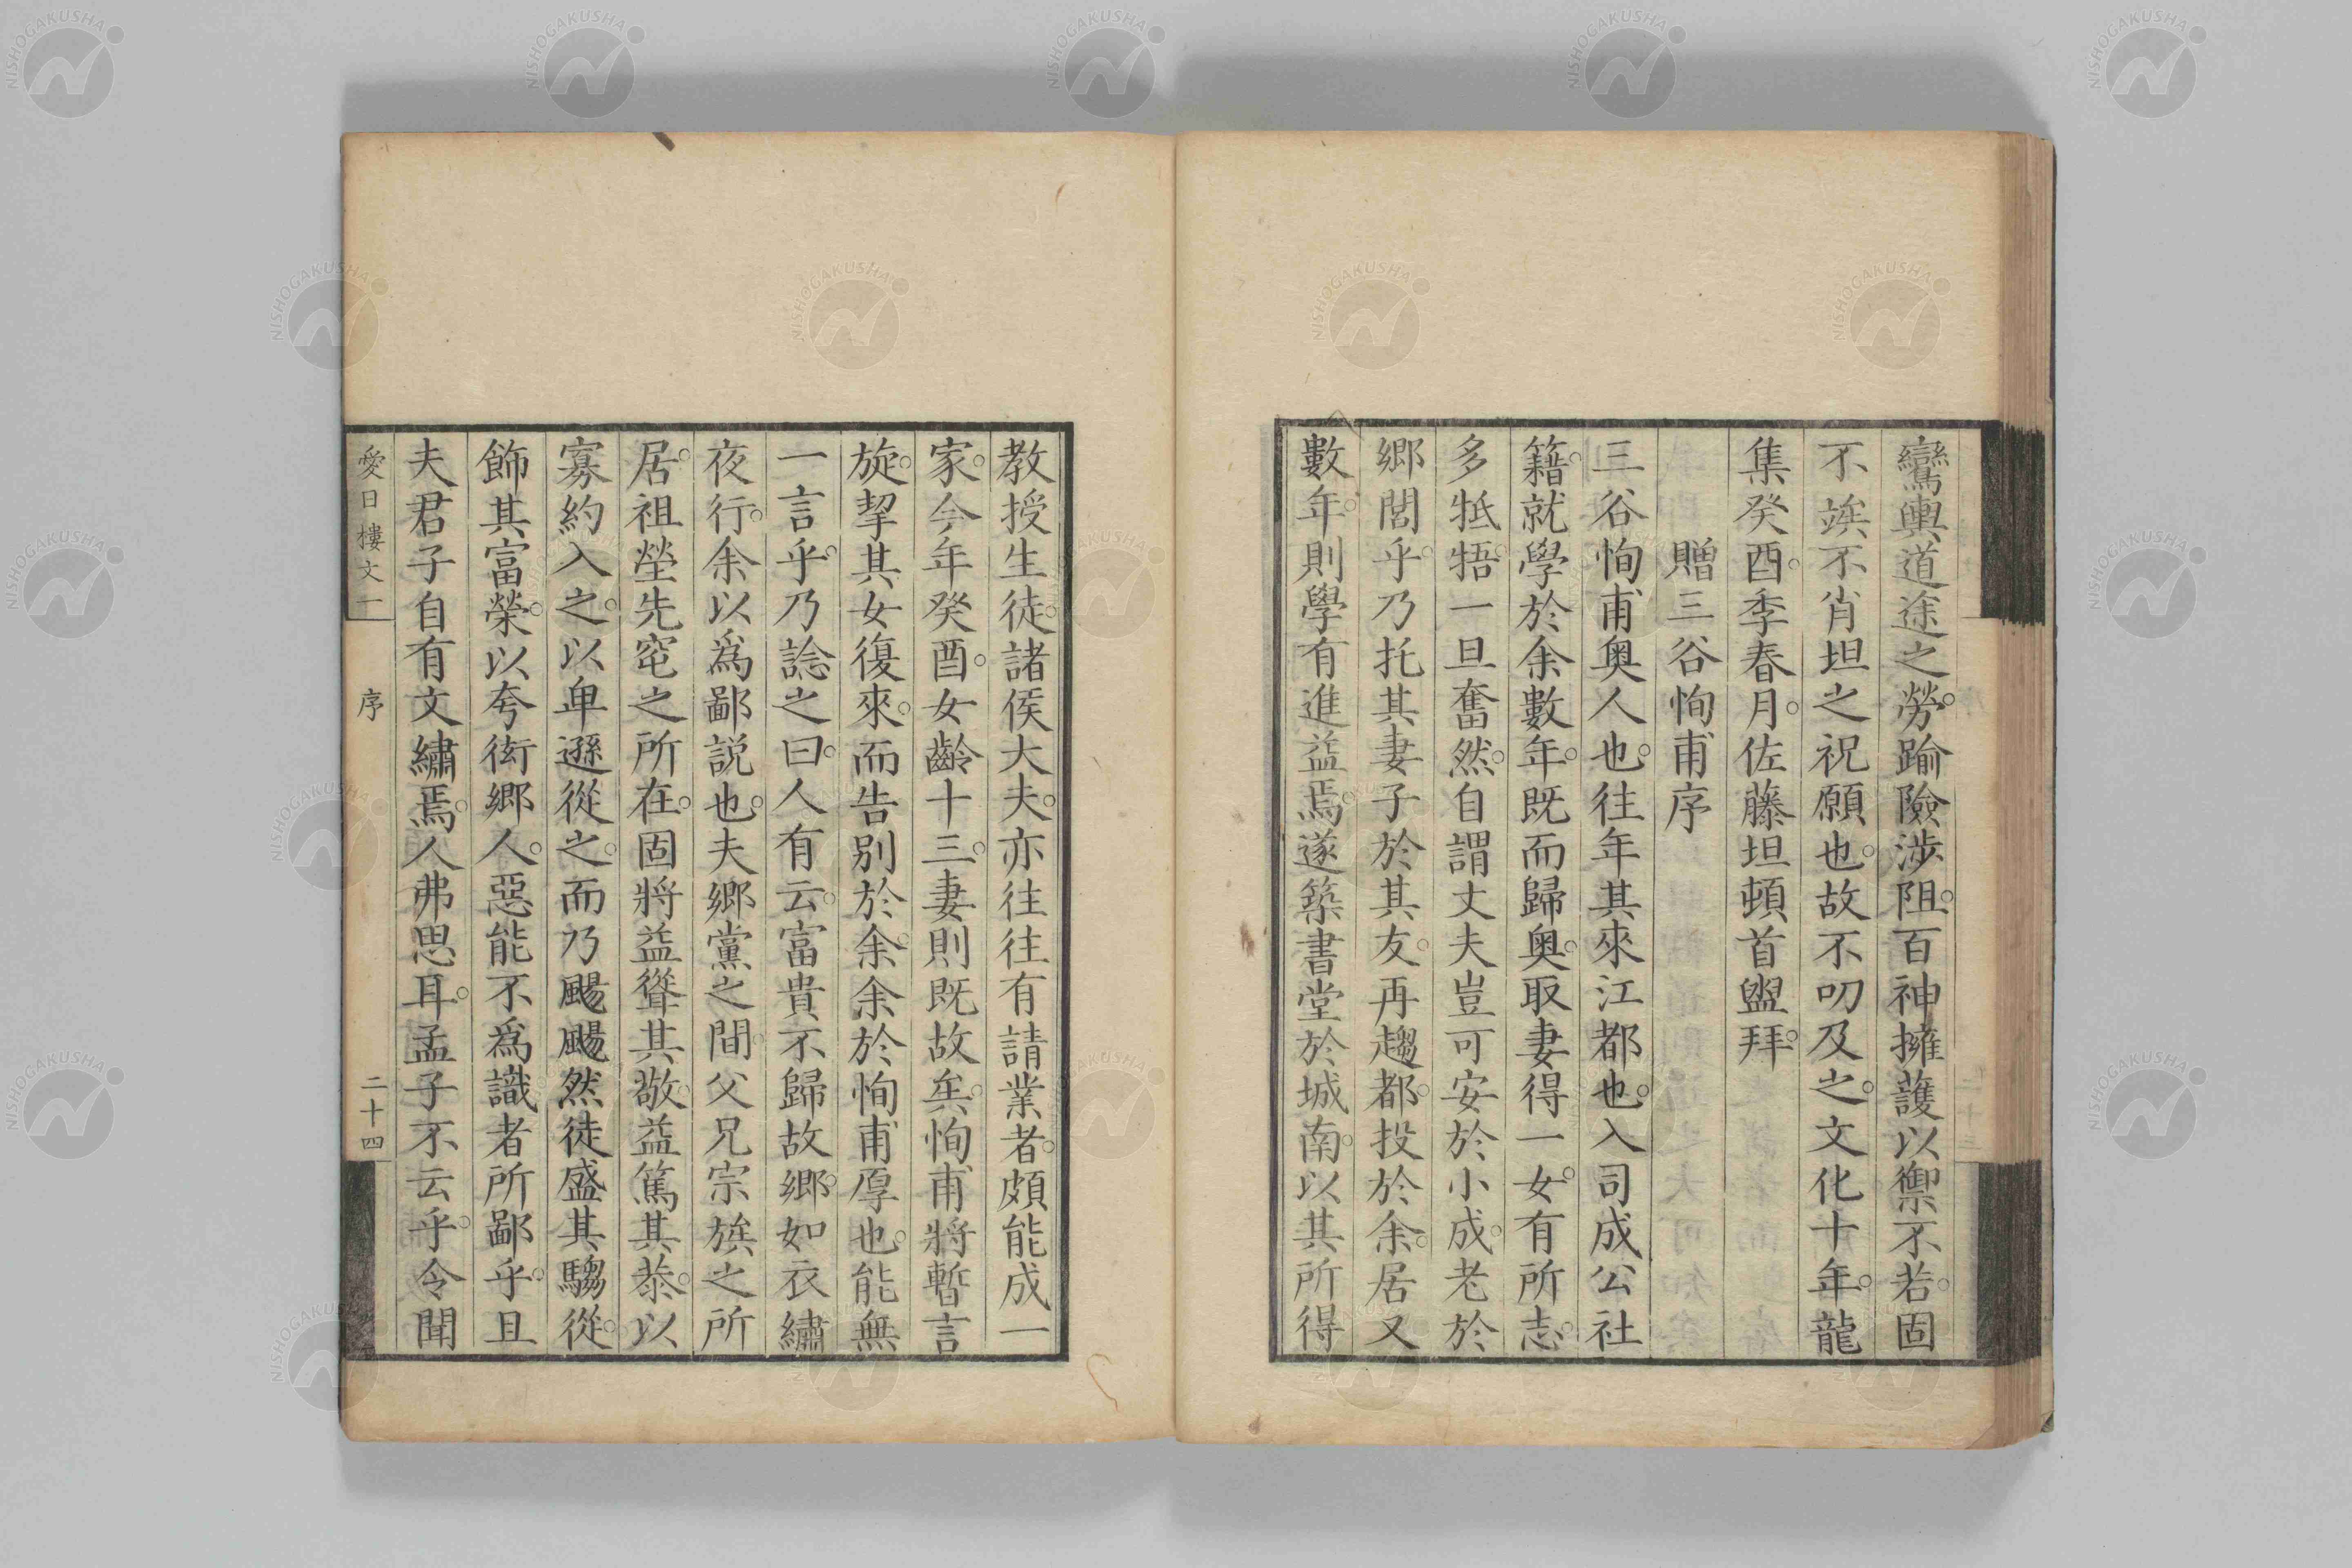 鸞輿道途之勞。踰險涉阻。百神擁護以禦不若。固
不竢不肖坦之祝願也。故不叨及之。文化十年。龍
集癸酉。季春月。佐藤坦頓首盥拜。
贈三谷恂甫序
三谷恂甫奧人也。往年其來江都也。入司成公社
籍。就學於余數年。既而歸奧。取妻得一女。有所志。
多牴牾。一旦奮然。自謂丈夫豈可安於小成。老於
鄉閭乎。乃托其妻子於其友。再趨都。投於余。居又
數年。則學有進益焉。遂築書堂於城南。以其所得
教授生徒。諸侯大夫。亦往往有請業者。頗能成一
家。今年癸酉。女齡十三。妻則既故矣。恂甫將暫言
旋。挈其女復來。而告別於余。余於恂甫厚也。能無
一言乎。乃諗之曰。人有云。富貴不歸故鄉。如衣繡
夜行。余以爲鄙説也。夫鄉黨之間。父兄宗族之所
居。祖塋先窀之所在。固將益聳其敬。益篤其恭。以
寡約入之。以卑遜從之。而乃颺颺然徒盛其騶從。
飾其富榮。以夸衒鄉人。惡能不爲識者所鄙乎。且
夫君子自有文繡焉。人弗思耳。孟子不云乎。令聞
愛日樓文一 序 二十四
NISHOGAKUSHA